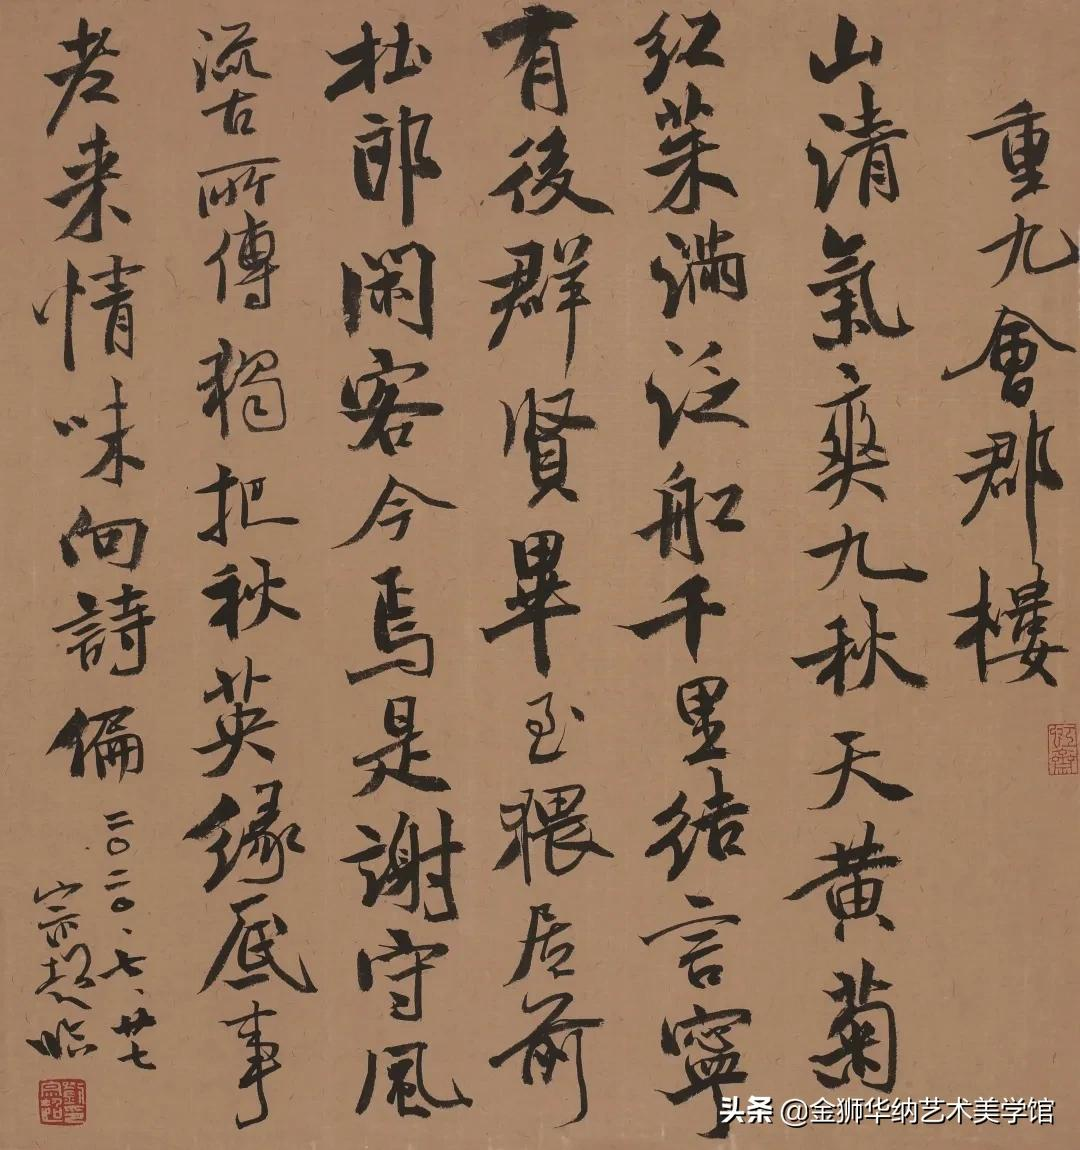 重九會郡樓
山清氣爽九秋天黄菊
紅茱滿泛船千里結言寧
有後群賢畢至猥居前
杜郎閑客今焉是謝守風
流古所傳獨把秋英緣底事
老来情味向詩偏
二〇二〇、七、廿七
宗超臨
头条 @金狮华纳艺术美学馆